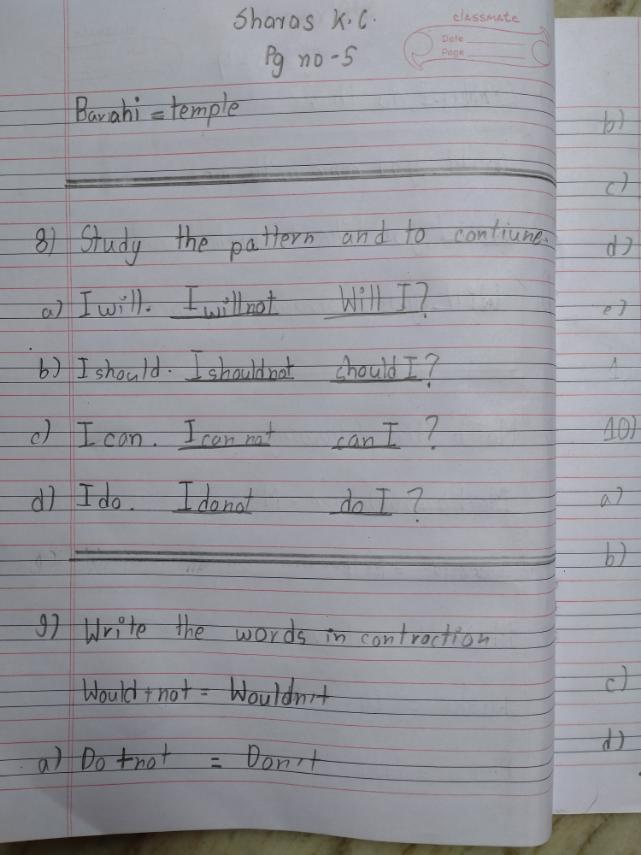 Sharas K.C.
Pg no-5
classmate
Date
Page
Barahi = temple
8) Study the pattern and to contiune.
a) I will. I will not Will I?
b) I should. I should not should I?
c) I can. I can not can I ?
d) I do. I do not do I ?
9) Write the words in contraction
Would + not = Wouldn't
a) Do + not = Don't
b)
c)
d)
e)
1
10)
a)
b)
c)
d)